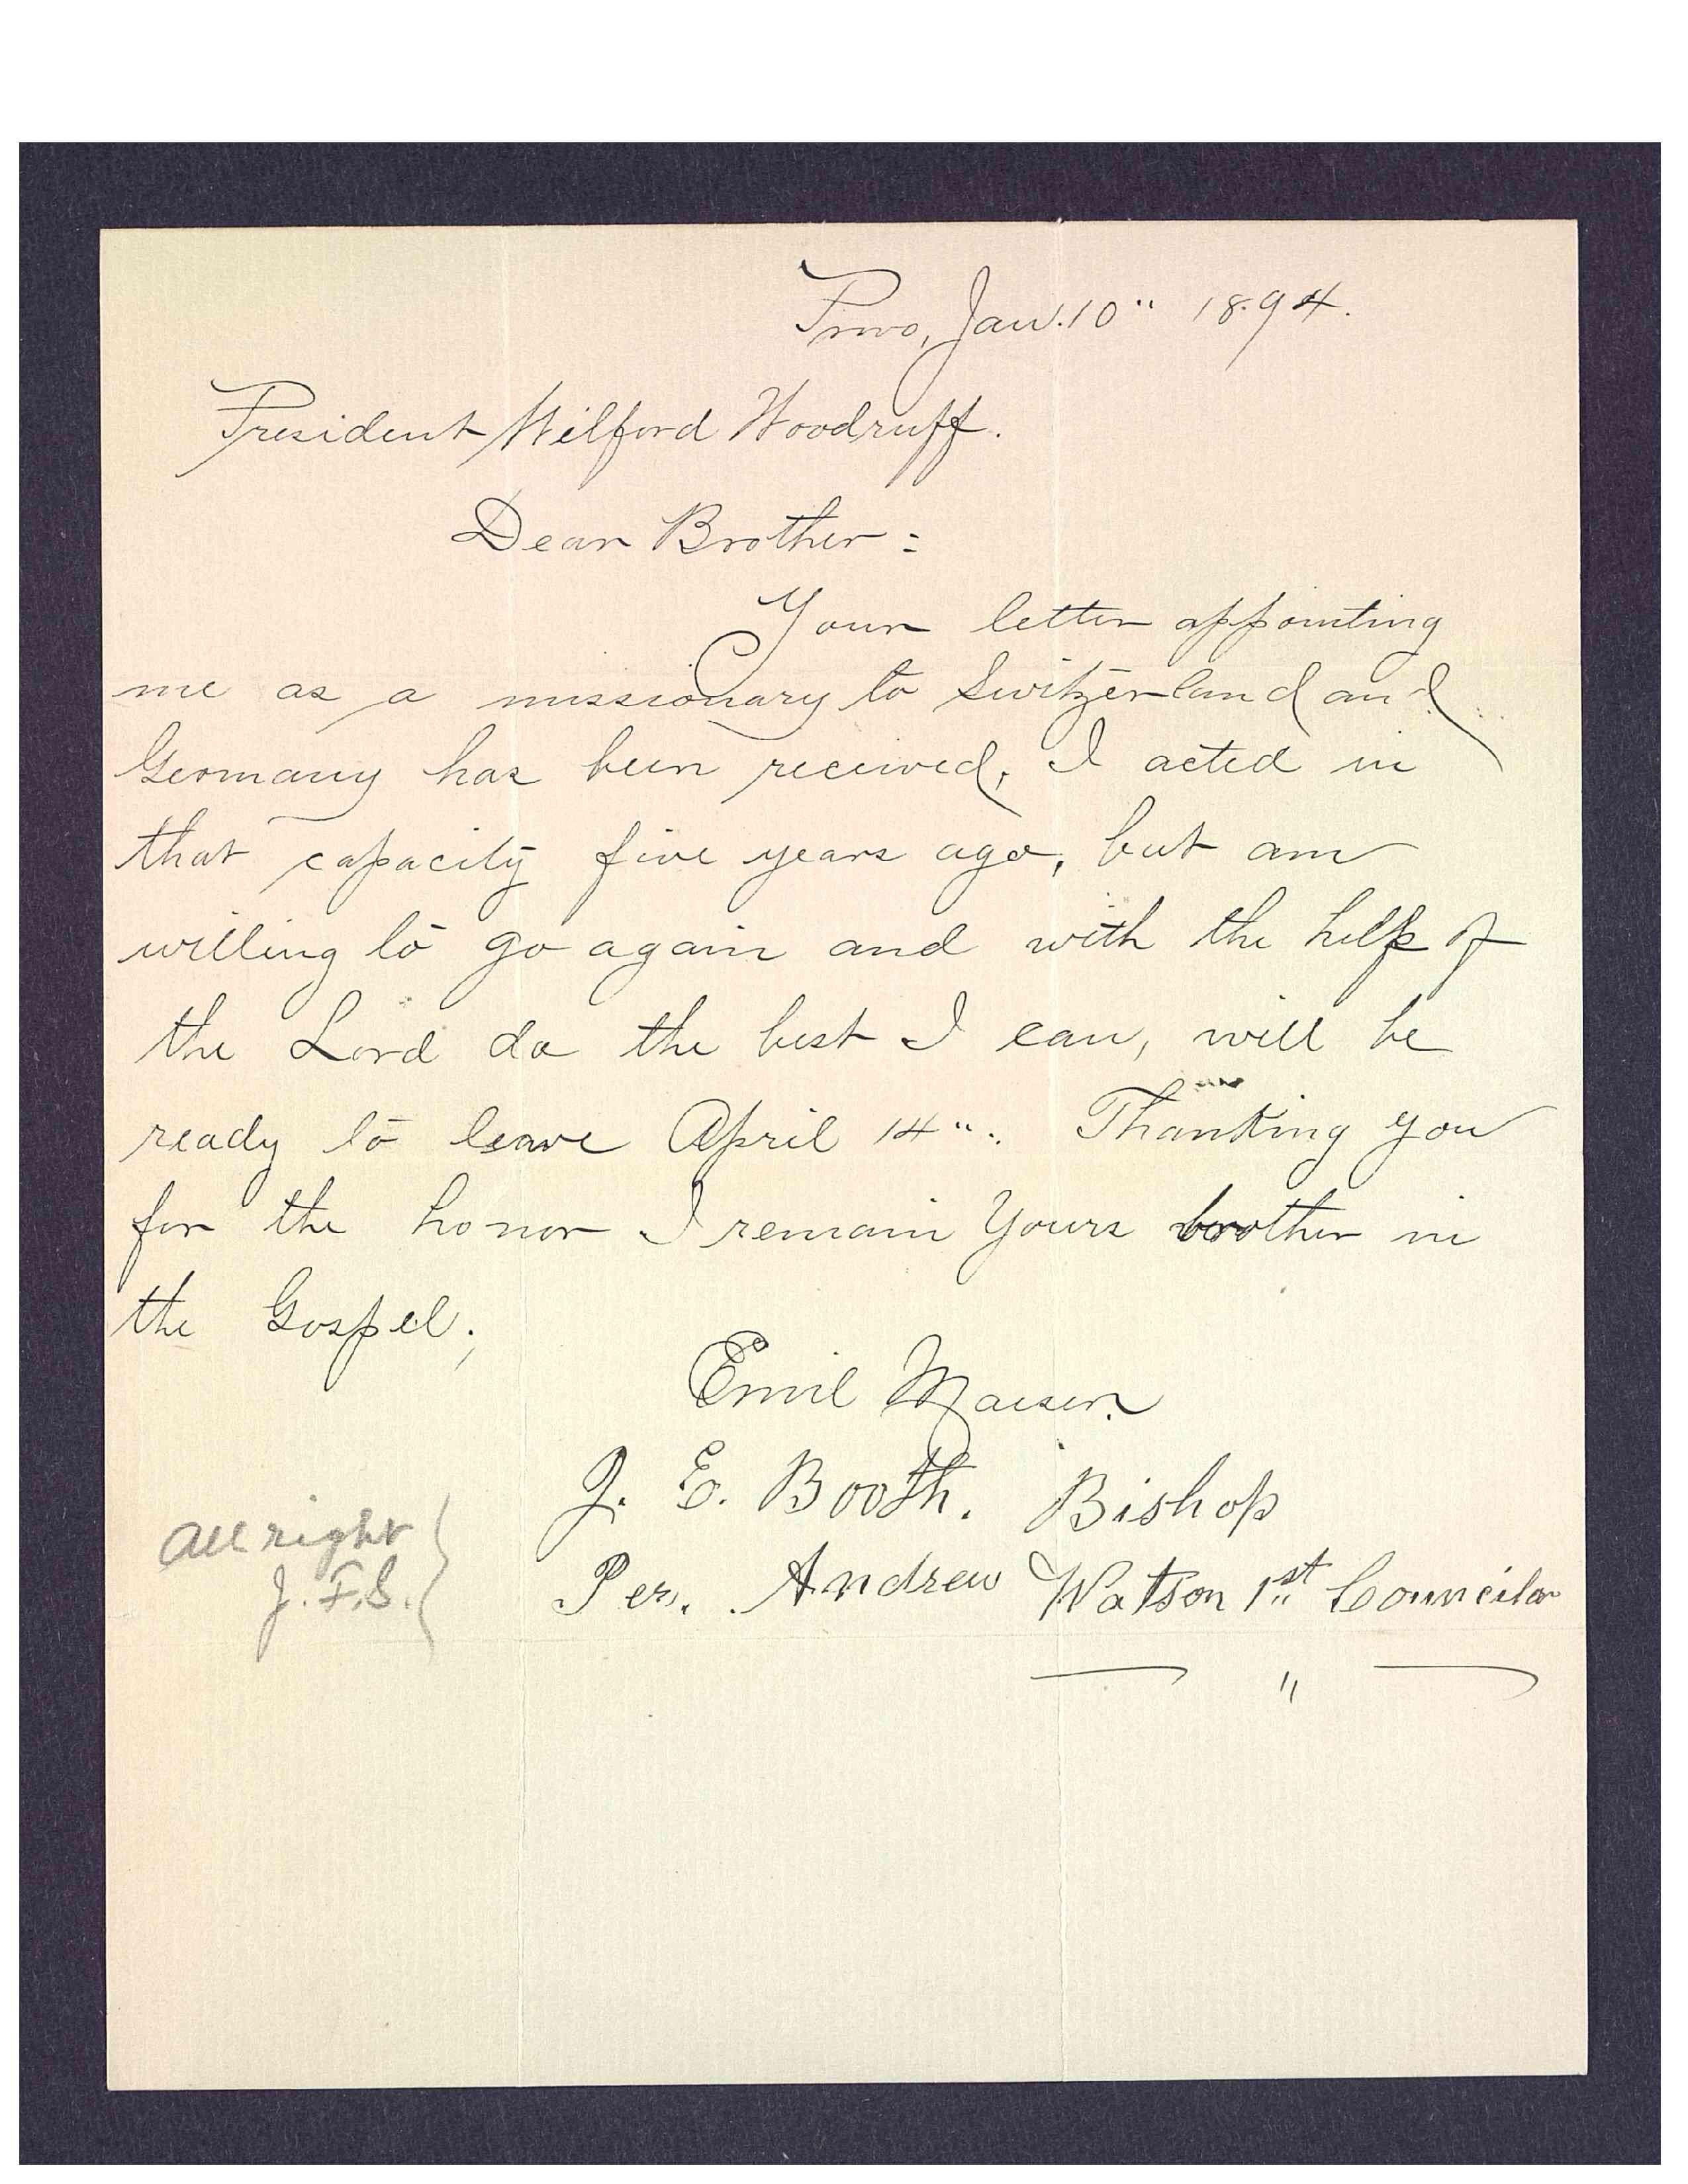 Provo, Jan. 10" 1894.
President Wilford Woodruff.
Dear Brother:
Your letter appointing
me as a missionary to Switzerland and
Germany has been received, I acted in
that capacity five years ago, but am
willing to go again and with the help of
the Lord do the best I can, will be
ready to leave April 14". Thanking you
for the honor I remain Yours brother in
the Gospel;
Emil Maeser.
J. E. Booth. Bishop
Per. Andrew Watson 1st Councilor
All right
J. F. S.
— " —